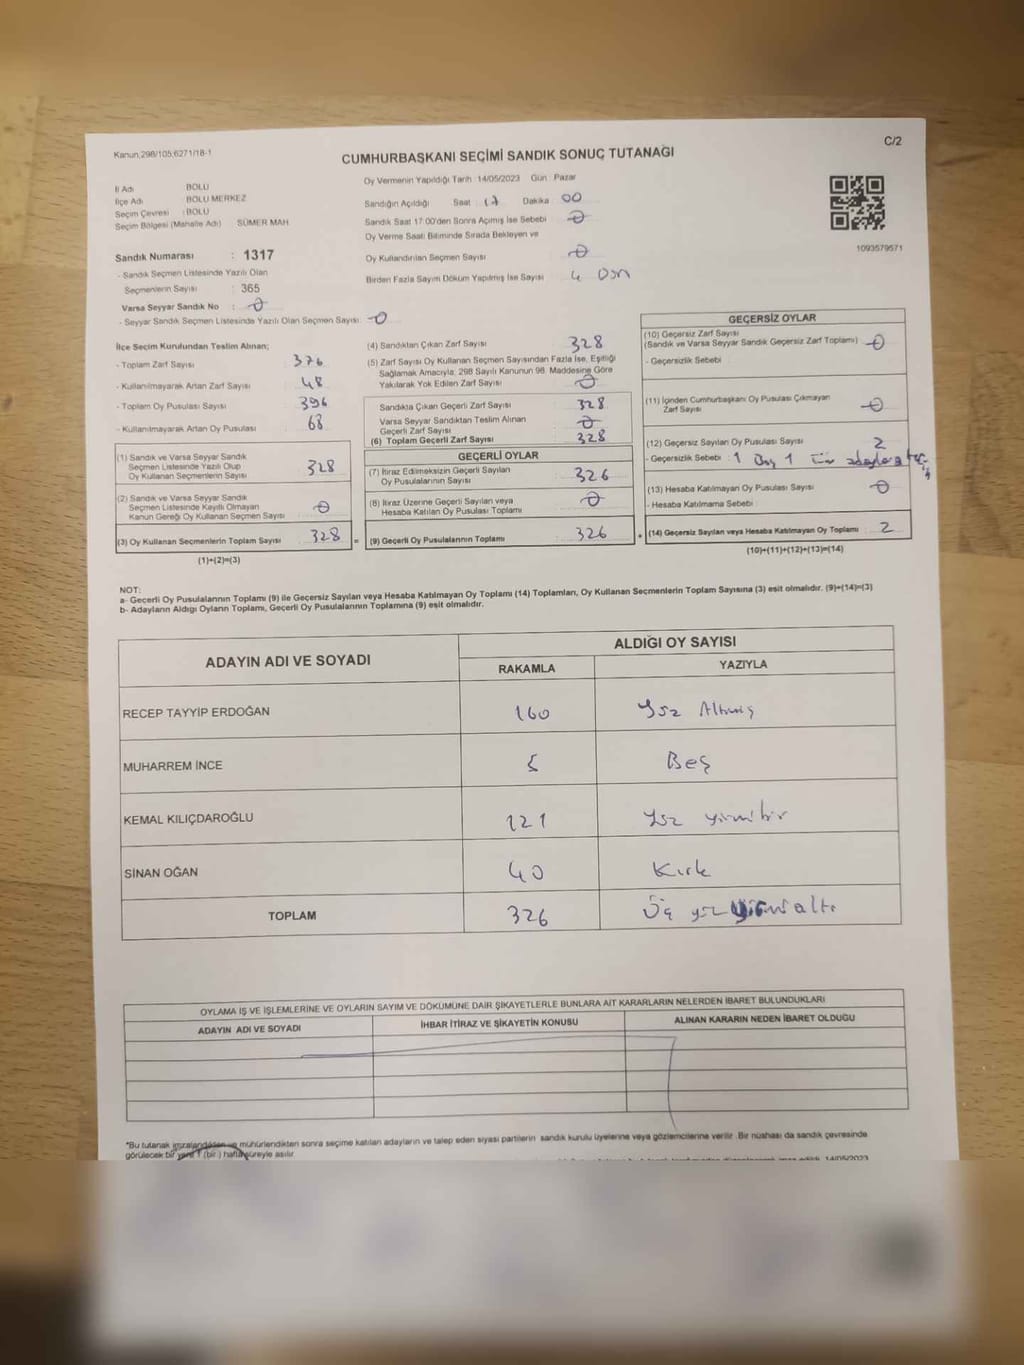 Kanun,298/105;6271/18-1
C/2
CUMHURBAŞKANI SEÇİMİ SANDIK SONUÇ TUTANAĞI
İl Adı : BOLU
İlçe Adı : BOLU MERKEZ
Seçim Çevresi : BOLU
Seçim Bölgesi (Mahalle Adı) : SÜMER MAH
Sandık Numarası : 1317
- Sandık Seçmen Listesinde Yazılı Olan
Seçmenlerin Sayısı : 365
Varsa Seyyar Sandık No : 0
- Seyyar Sandık Seçmen Listesinde Yazılı Olan Seçmen Sayısı: 0
Oy Vermenin Yapıldığı Tarih :14/05/2023 Gün : Pazar
Sandığın Açıldığı Saat : 17 Dakika : 00
Sandık Saat 17:00'den Sonra Açılmış İse Sebebi : 0
Oy Verme Saati Bitiminde Sırada Bekleyen ve
Oy Kullandırılan Seçmen Sayısı : 0
Birden Fazla Sayım Döküm Yapılmış İse Sayısı : 4
1093579571
İlçe Seçim Kurulundan Teslim Alınan;
- Toplam Zarf Sayısı : 376
- Kullanılmayarak Artan Zarf Sayısı : 48
- Toplam Oy Pusulası Sayısı : 396
- Kullanılmayarak Artan Oy Pusulası : 68
(1) Sandık ve Varsa Seyyar Sandık
Seçmen Listesinde Yazılı Olup
Oy Kullanan Seçmenlerin Sayısı : 328
(2) Sandık ve Varsa Seyyar Sandık
Seçmen Listesinde Kayıtlı Olmayan
Kanun Gereği Oy Kullanan Seçmen Sayısı : 0
(3) Oy Kullanan Seçmenlerin Toplam Sayısı : 328
(1)+(2)=(3)
(4) Sandıktan Çıkan Zarf Sayısı : 328
(5) Zarf Sayısı Oy Kullanan Seçmen Sayısından Fazla İse, Eşitliği
Sağlamak Amacıyla, 298 Sayılı Kanunun 98. Maddesine Göre
Yakılarak Yok Edilen Zarf Sayısı : 0
Sandıkta Çıkan Geçerli Zarf Sayısı : 328
Varsa Seyyar Sandıktan Teslim Alınan
Geçerli Zarf Sayısı : 0
(6) Toplam Geçerli Zarf Sayısı : 328
GEÇERLİ OYLAR
(7) İtiraz Edilmeksizin Geçerli Sayılan
Oy Pusulalarının Sayısı : 326
(8) İtiraz Üzerine Geçerli Sayılan veya
Hesaba Katılan Oy Pusulası Toplamı : 0
= (9) Geçerli Oy Pusulalarının Toplamı : 326
GEÇERSİZ OYLAR
(10) Geçersiz Zarf Sayısı
(Sandık ve Varsa Seyyar Sandık Geçersiz Zarf Toplamı) : 0
- Geçersizlik Sebebi :
(11) İçinden Cumhurbaşkanı Oy Pusulası Çıkmayan
Zarf Sayısı : 0
(12) Geçersiz Sayılan Oy Pusulası Sayısı : 2
- Geçersizlik Sebebi : 1 Boş 1 tüm adaylara
(13) Hesaba Katılmayan Oy Pusulası Sayısı : 0
- Hesaba Katılmama Sebebi :
+ (14) Geçersiz Sayılan veya Hesaba Katılmayan Oy Toplamı : 2
(10)+(11)+(12)+(13)=(14)
NOT:
a- Geçerli Oy Pusulalarının Toplamı (9) ile Geçersiz Sayılan veya Hesaba Katılmayan Oy Toplamı (14) Toplamları, Oy Kullanan Seçmenlerin Toplam Sayısına (3) eşit olmalıdır. (9)+(14)=(3)
b- Adayların Aldığı Oyların Toplamı, Geçerli Oy Pusulalarının Toplamına (9) eşit olmalıdır.
ADAYIN ADI VE SOYADI
ALDIĞI OY SAYISI
RAKAMLA YAZIYLA
RECEP TAYYİP ERDOĞAN 160 Yüz Altmış
MUHARREM İNCE 5 Beş
KEMAL KILIÇDAROĞLU 121 Yüz yirmibir
SİNAN OĞAN 40 Kırk
TOPLAM 326 Üç yüz yirmi altı
OYLAMA İŞ VE İŞLEMLERİNE VE OYLARIN SAYIM VE DÖKÜMÜNE DAİR ŞİKAYETLERLE BUNLARA AİT KARARLARIN NELERDEN İBARET BULUNDUKLARI
ADAYIN ADI VE SOYADI İHBAR İTİRAZ VE ŞİKAYETİN KONUSU ALINAN KARARIN NEDEN İBARET OLDUĞU
*Bu tutanak imzalandıktan ve mühürlendikten sonra seçime katılan adayların ve talep eden siyasi partilerin sandık kurulu üyelerine veya gözlemcilerine verilir. Bir nüshası da sandık çevresinde
görülecek bir yere 1 (bir) hafta süreyle asılır.
14/05/2023